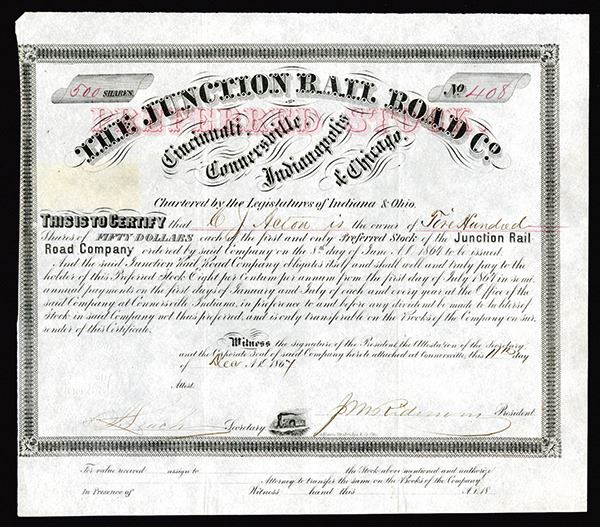 500 SHARES.
No 408
THE JUNCTION RAIL ROAD Co.
PREFERRED STOCK.
Cincinnati
Connersville
Indianapolis
& Chicago.
Chartered by the Legislatures of Indiana & Ohio.
THIS IS TO CERTIFY that C J Acton is the owner of Five Hundred
Shares of FIFTY DOLLARS each of the first and only Preferred Stock of the Junction Rail
Road Company ordered by said Company on the 8th day of June A.D. 1864 to be issued.
And the said Junction Rail Road Company obligates itself and shall well and truly pay to the
holder of this Preferred Stock Eight per Centum per annum from the first day of July 1867 in semi
annual payments on the first days of January and July of each and every year at the Office of the
said Company at Connersville, Indiana, in preference to and before any dividend be made to holders of
Stock in said Company not thus preferred, and is only transferable on the Books of the Company on sur-
render of this Certificate.
Witness the signature of the President, the Attestation of the Secretary
and the Corporate Seal of said Company hereto attached at Connersville, this 11th day
of Dec A.D. 1867
Attest.
Secretary
President.
For value received assign to the Stock above mentioned and authorize
Attorney to transfer the same on the Books of the Company
In Presence of Witness hand this A.D. 18